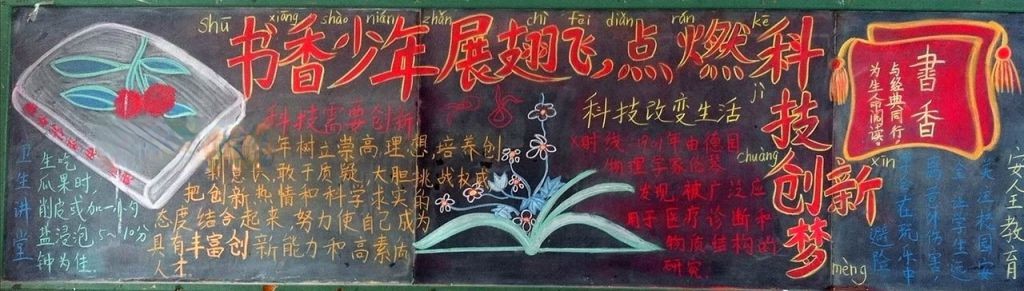 shū xiāng shào nián zhǎn chì fēi diǎn rán kē
书香少年展翅飞,点燃科
jì
技
chuàng xīn
创新
mèng
梦
卫生讲堂
生吃
瓜果时,
削皮或加一小勺
盐浸泡5~10分
钟为佳.
科技需要创新
年树立崇高理想,培养创
敢于质疑,大胆挑战权威
把创新热情和科学求实的
态度结合起来,努力使自己成为
具有丰富创新能力和高素质
人才.
科技改变生活
X射线 由德国
物理学家伦琴
发现,被广泛应
用于医疗诊断和
物质结构的
研究.
書香
与经典同行
为生命阅读
教育